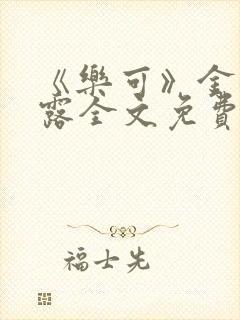 《樂可》金
露全文免費
福士先